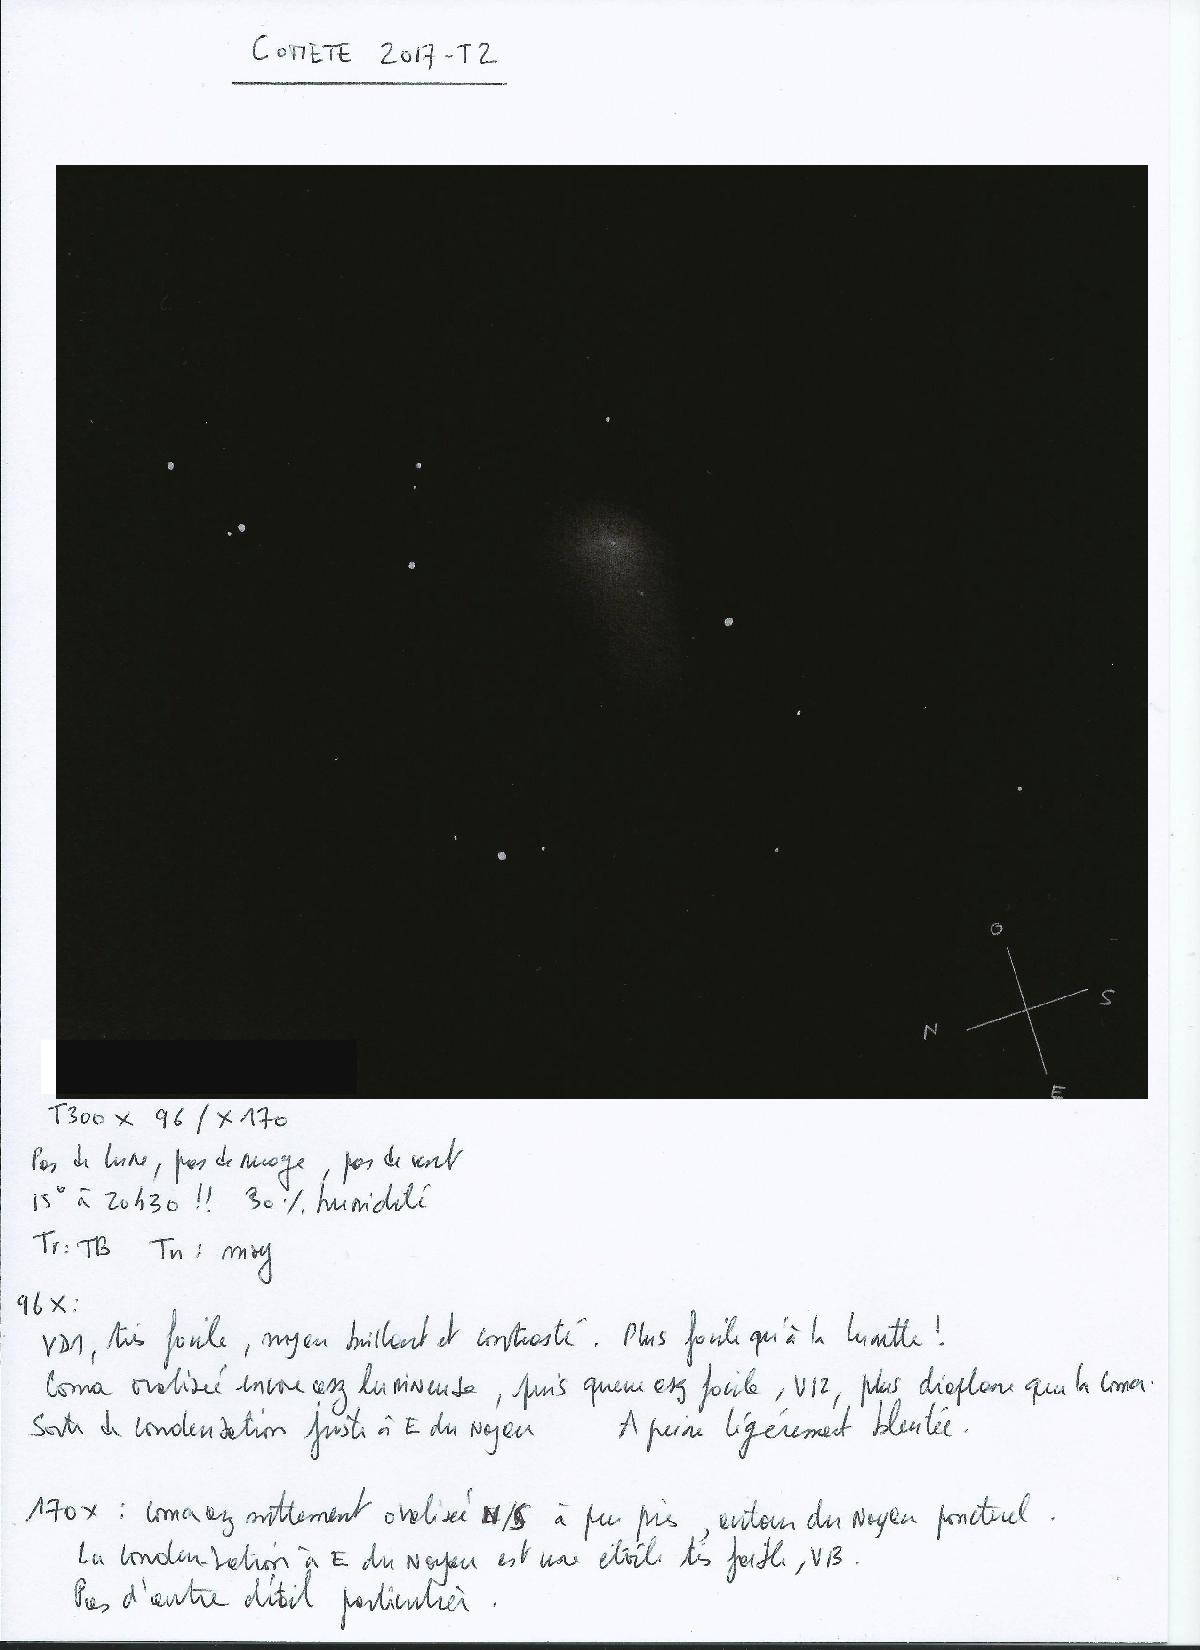 COMETE 2017-T2
O
S
N
E
T300 x 96 / x 170
Pas de lune, pas de nuage, pas de vent
15° à 20h30 !! 30 % humidité
Tr: TB Tu : moy
96 X:
VD1, très facile, noyau brillant et contrasté. Plus facile qu'à la lunette !
Coma ovalisée encore asz lumineuse, puis queue asz facile, VI2, plus diaphane que la coma.
Sorte de condensation juste à E du Noyau A peine légèrement bleutée.
170x : coma asz nettement ovalisée N/S à peu près, autour du Noyau ponctuel.
La condensation à E du Noyau est une étoile très faible, VI3.
Pas d'autre détail particulier.